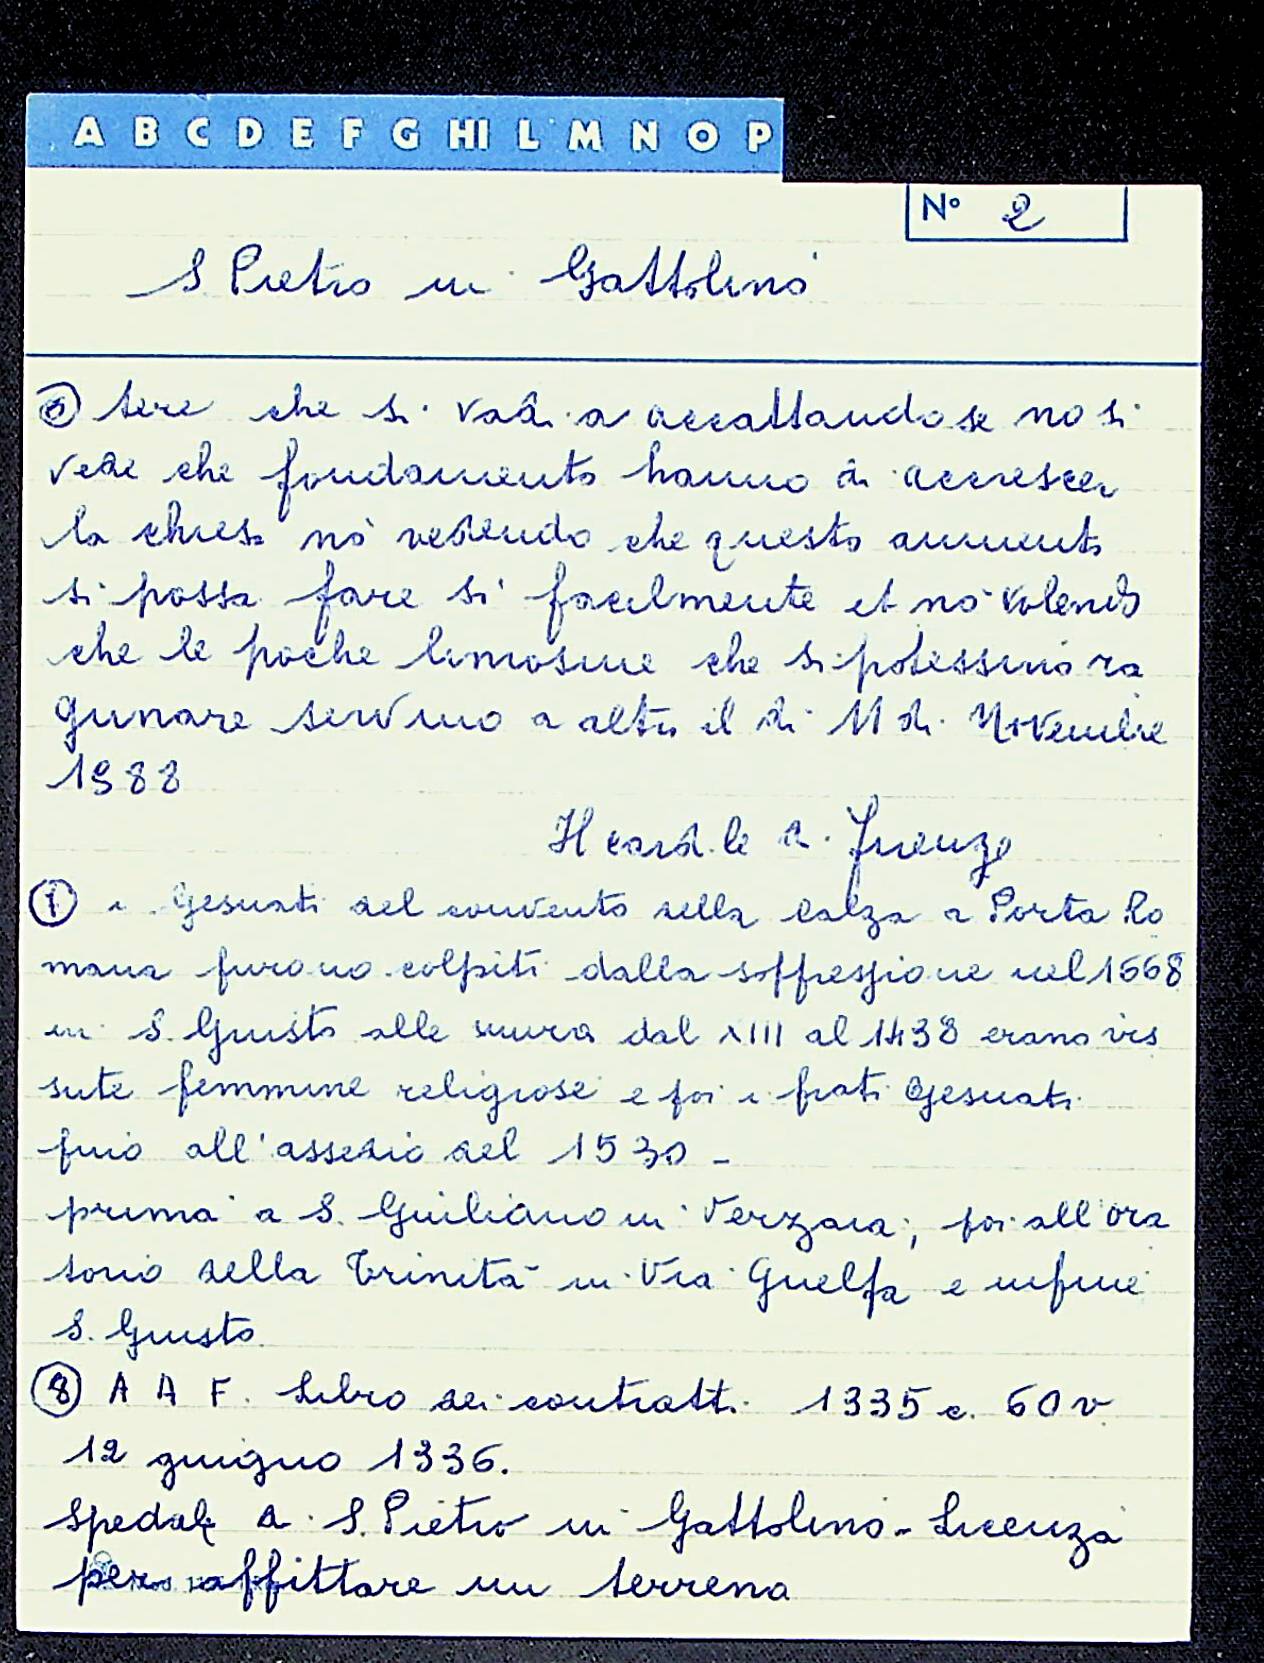 A B C D E F G HI L M N O P
N° 2
S Pietro in Gattolino
⑥ tere che si vadi a accattando se no si
vede che fondamento hanno di accrescer
la chiesa nō vedendo che questo aumento
si possa fare si facilmente et nō volendo
che le poche limosine che si potessino ra
gunare servino a altro il dì 11 di Novembre
1588
Il card.le di Firenze
i Gesuati del convento della Calza a Porta Ro
mana furono colpiti dalla soppressione nel 1668
in S. Giusto alle mura dal XIII al 1438 erano vis
sute femmine religiose e poi i frati Gesuati
fino all'assedio del 1530 -
prima a S. Giuliano in Verzaia, poi all'ora
torio della Trinità in Via Guelfa e infine
S. Giusto
⑧ A A F. Libro dei contratti 1335 c. 60 v
12 giugno 1336.
Spedale di S. Pietro in Gattolino - Licenza
per affittare un terreno